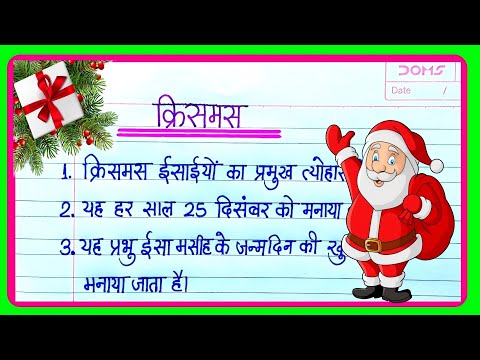 DOMS
Date /
क्रिसमस
1. क्रिसमस ईसाईयों का प्रमुख त्योहार
2. यह हर साल 25 दिसंबर को मनाया
3. यह प्रभु ईसा मसीह के जन्मदिन की
मनाया जाता है।